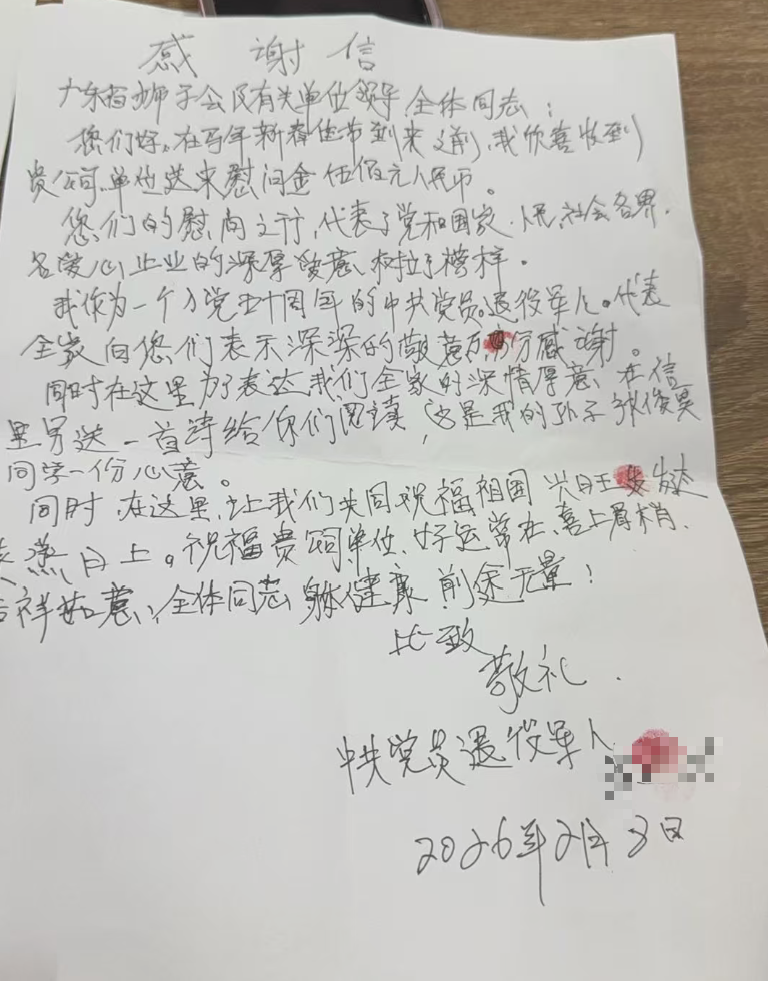 感谢信
广东省狮子会及有关单位领导,全体同志:
您们好,在马年新春佳节到来之前,我欣喜收到
贵公司,单位送来慰问金伍佰元人民币。
您们的慰问之行,代表了党和国家、人民,社会各界,
各爱心企业的深厚爱意,树立了榜样。
我作为一个入党五十周年的中共党员,退役军人。代表
全家向您们表示深深的敬意万分感谢。
同时在这里为了表达我们全家的深情厚意,在信
里另送一首诗给你们阅读,也是我的孙子
同学一份心意。
同时,在这里,让我们共同祝福祖国兴旺发达
蒸日上。祝福贵公司单位、好运常在、喜上眉梢、
吉祥如意,全体同志身体健康,前途无量!
此致
敬礼.
中共党员退役军人
2026年2月3日